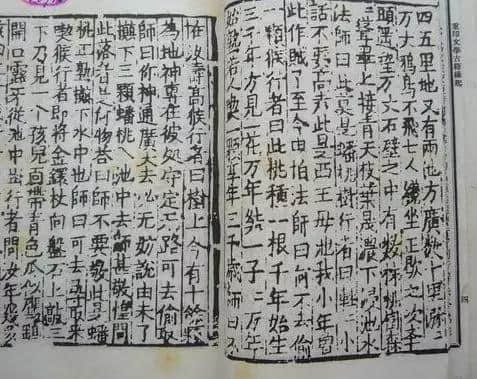 四五里地又有兩池方廣數十里渺瀰
万丈鴉鳥不飛七人纔坐正歇之次舉
頭遥望万丈石壁之中有數株桃樹森
聳翠上接青天枝葉茂濃下浸池水
法師曰此莫是蟠桃樹行者曰輕小
話不要高聲此是西王母池我小年曾
此作賊了至今由怕法師曰何不去偷
一顆猴行者曰此桃種一根千年始生
三千年方見一花万年結一子子万年
始熟若人喫一顆享年三千歲師曰不
汝壽高猴行者曰樹上今有十餘顆
為地神專在彼処守定无路可去偷取
師曰你神通廣大去必无妨說由未了
攧下三顆蟠桃入池中去師甚敬惶問
此落者是何物荅曰師不要敬此是蟠
桃正熟攧下水中也師曰可去尋取來
喫猴行者即將金鐶杖向盤石上敲三
下乃見一个孩兒面帶青色爪似鷹鷂
開口露牙從池中出行者問汝年幾
四